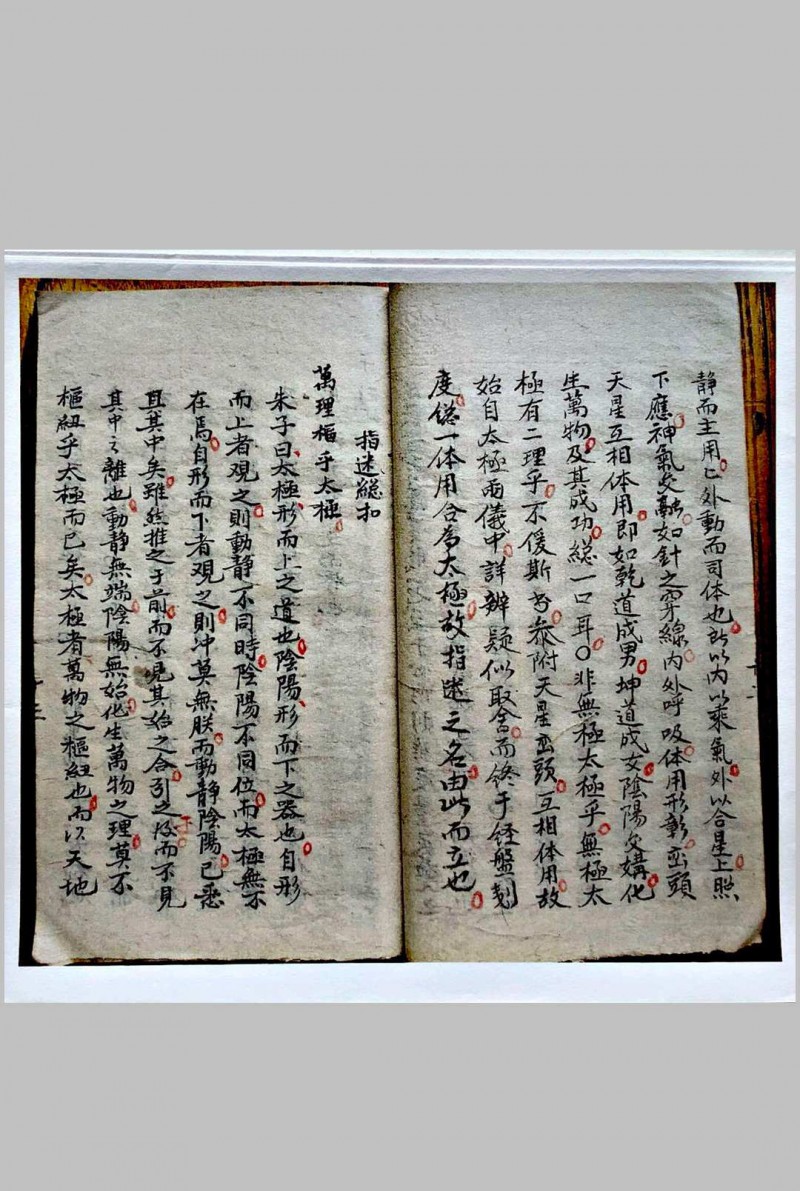 静而主用已外動而司体也所以内以乘氣外以合星上照
下應神氣交融如針之穿線内外呼吸体用形彰巒頭
天星互相体用即如乾道成男坤道成女陰陽交媾化
生萬物及其成功総一口耳〇非無極太極乎無極太
極有二理乎不侫斯方叅附天星巒頭互相体用故
始自太極两儀中詳辨疑似取舍而終于経盤刻
度総一体用合為太極故指迷之名由此而立也
指迷総扣
萬理樞乎太極
朱子曰太極形而上之道也陰陽形而下之器也自形
而上者观之則動靜不同時陰陽不同位而太極無不
在焉自形而下者观之則冲莫無朕而動静陰陽已悉
具其中矣雖然推之于前而不見其始之合引之于後而不見
其中之離也動静無端陰陽無始化生萬物之理莫不
樞紐乎太極而已矣太極者萬物之樞紐也而以天地